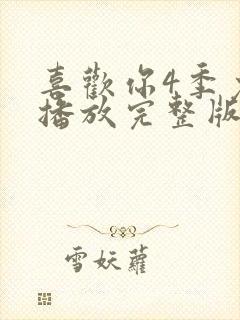 喜歡你4季
播放完整版
雪妖蘿